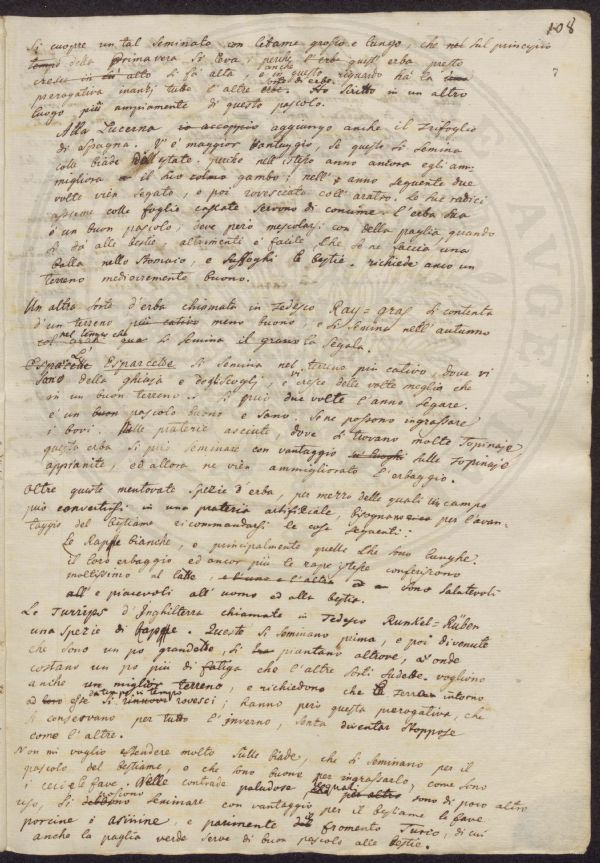 108
Si cuopre un tal Seminato con letame grosso e lungo, che nel sul principio
tempo della primavera si leva; perche l'erb quest'erba presto
cresce in alto si fà alta, e anche in questo riguardo hà la
prerogativa inanzi tutte l'altre sorti di erbe. Ho scritto in un altro
luogo più ampiamente di questo pascolo.
Alla Lucerna io accoppio aggiungo anche il Trifoglio
di Spagna. V'è maggior vantaggio, se questo si semina
colle biade dell'estate. perche nell'istesso anno ancora egli am-
migliora il suo gambo; nell' anno seguente due
volte vien segato, e poi rovesciato coll'aratro. Le sue radici
assieme colle foglie cascate servono di concime. l'erba sua
è un buon pascolo, deve però mescolarsi con della paglia quando
si dà alle bestie, altrimenti è facile, che se ne faccia una
balla nello stomaco, e suffoghi le bestie. richiede anco un
terreno mediocremente buono.
Un altra sorte d'erba chiamata in Tedesco Ray=gras si contenta
d'un terreno più cativo meno buono, e si semina nell'autunno
nel tempo che si semina il grano la Segala.
Esparcette Esparcette si semina nel terreno più cativo, dove vi
sono della ghiaja e degli scogli, e vi cresce delle volte meglio che
in un buon terreno. Si può due volte l'anno segare.
è un buon pascolo buono e sano. Se ne possono ingrassare
i bovi. Alle praterie asciute, dove si trovano molte Topinaje
questa erba si può seminare con vantaggio sulle Topinaje
appianite, ed allora ne vien ammigliorato l'erbaggio.
Oltre queste mentovate spezie d'erba, per mezzo delle quali un campo
può convertirsi in una prateria artificiale, bisognano per l'avan-
taggio del bestiame raccomandarsi le cose seguenti:
Le Rape bianche, e principalmente quelle che sono lunghe:
il loro erbaggio ed ancor più le rape istesse conferiscono
moltissimo al latte, e l'uno e l'altro sono salutevoli
all' e piacevoli all'uomo ed alla bestia.
Le Turnips d'Inghilterra chiamate in Tedesco Runkel=Rüben
una spezie di rape. Queste si seminano prima, e poi divenute
che sono un po grandette, si piantano altrove, onde
costano un po più di fatiga che l'altre sorti sudette. vogliono
anche un miglior terreno, e richiedono che la terra intorno
ad esse da tempo in tempo si rovesci; hanno però questa prerogativa, che
si conservano per tutto l'inverno, senza diventar stoppose
come l'altre.
Non mi voglio estendere molto sulle biade, che si seminano per il
pascolo del bestiame, e che sono buone per ingrassarlo, come sono
i ceci e le fave. Nelle contrade paludose le quali sono di poco altro
uso, si possono seminare con vantaggio per il bestiame le fave
porcine e asinine, e parimente il fromento Turco, di cui
anche la paglia verde serve di buon pascolo alle bestie.